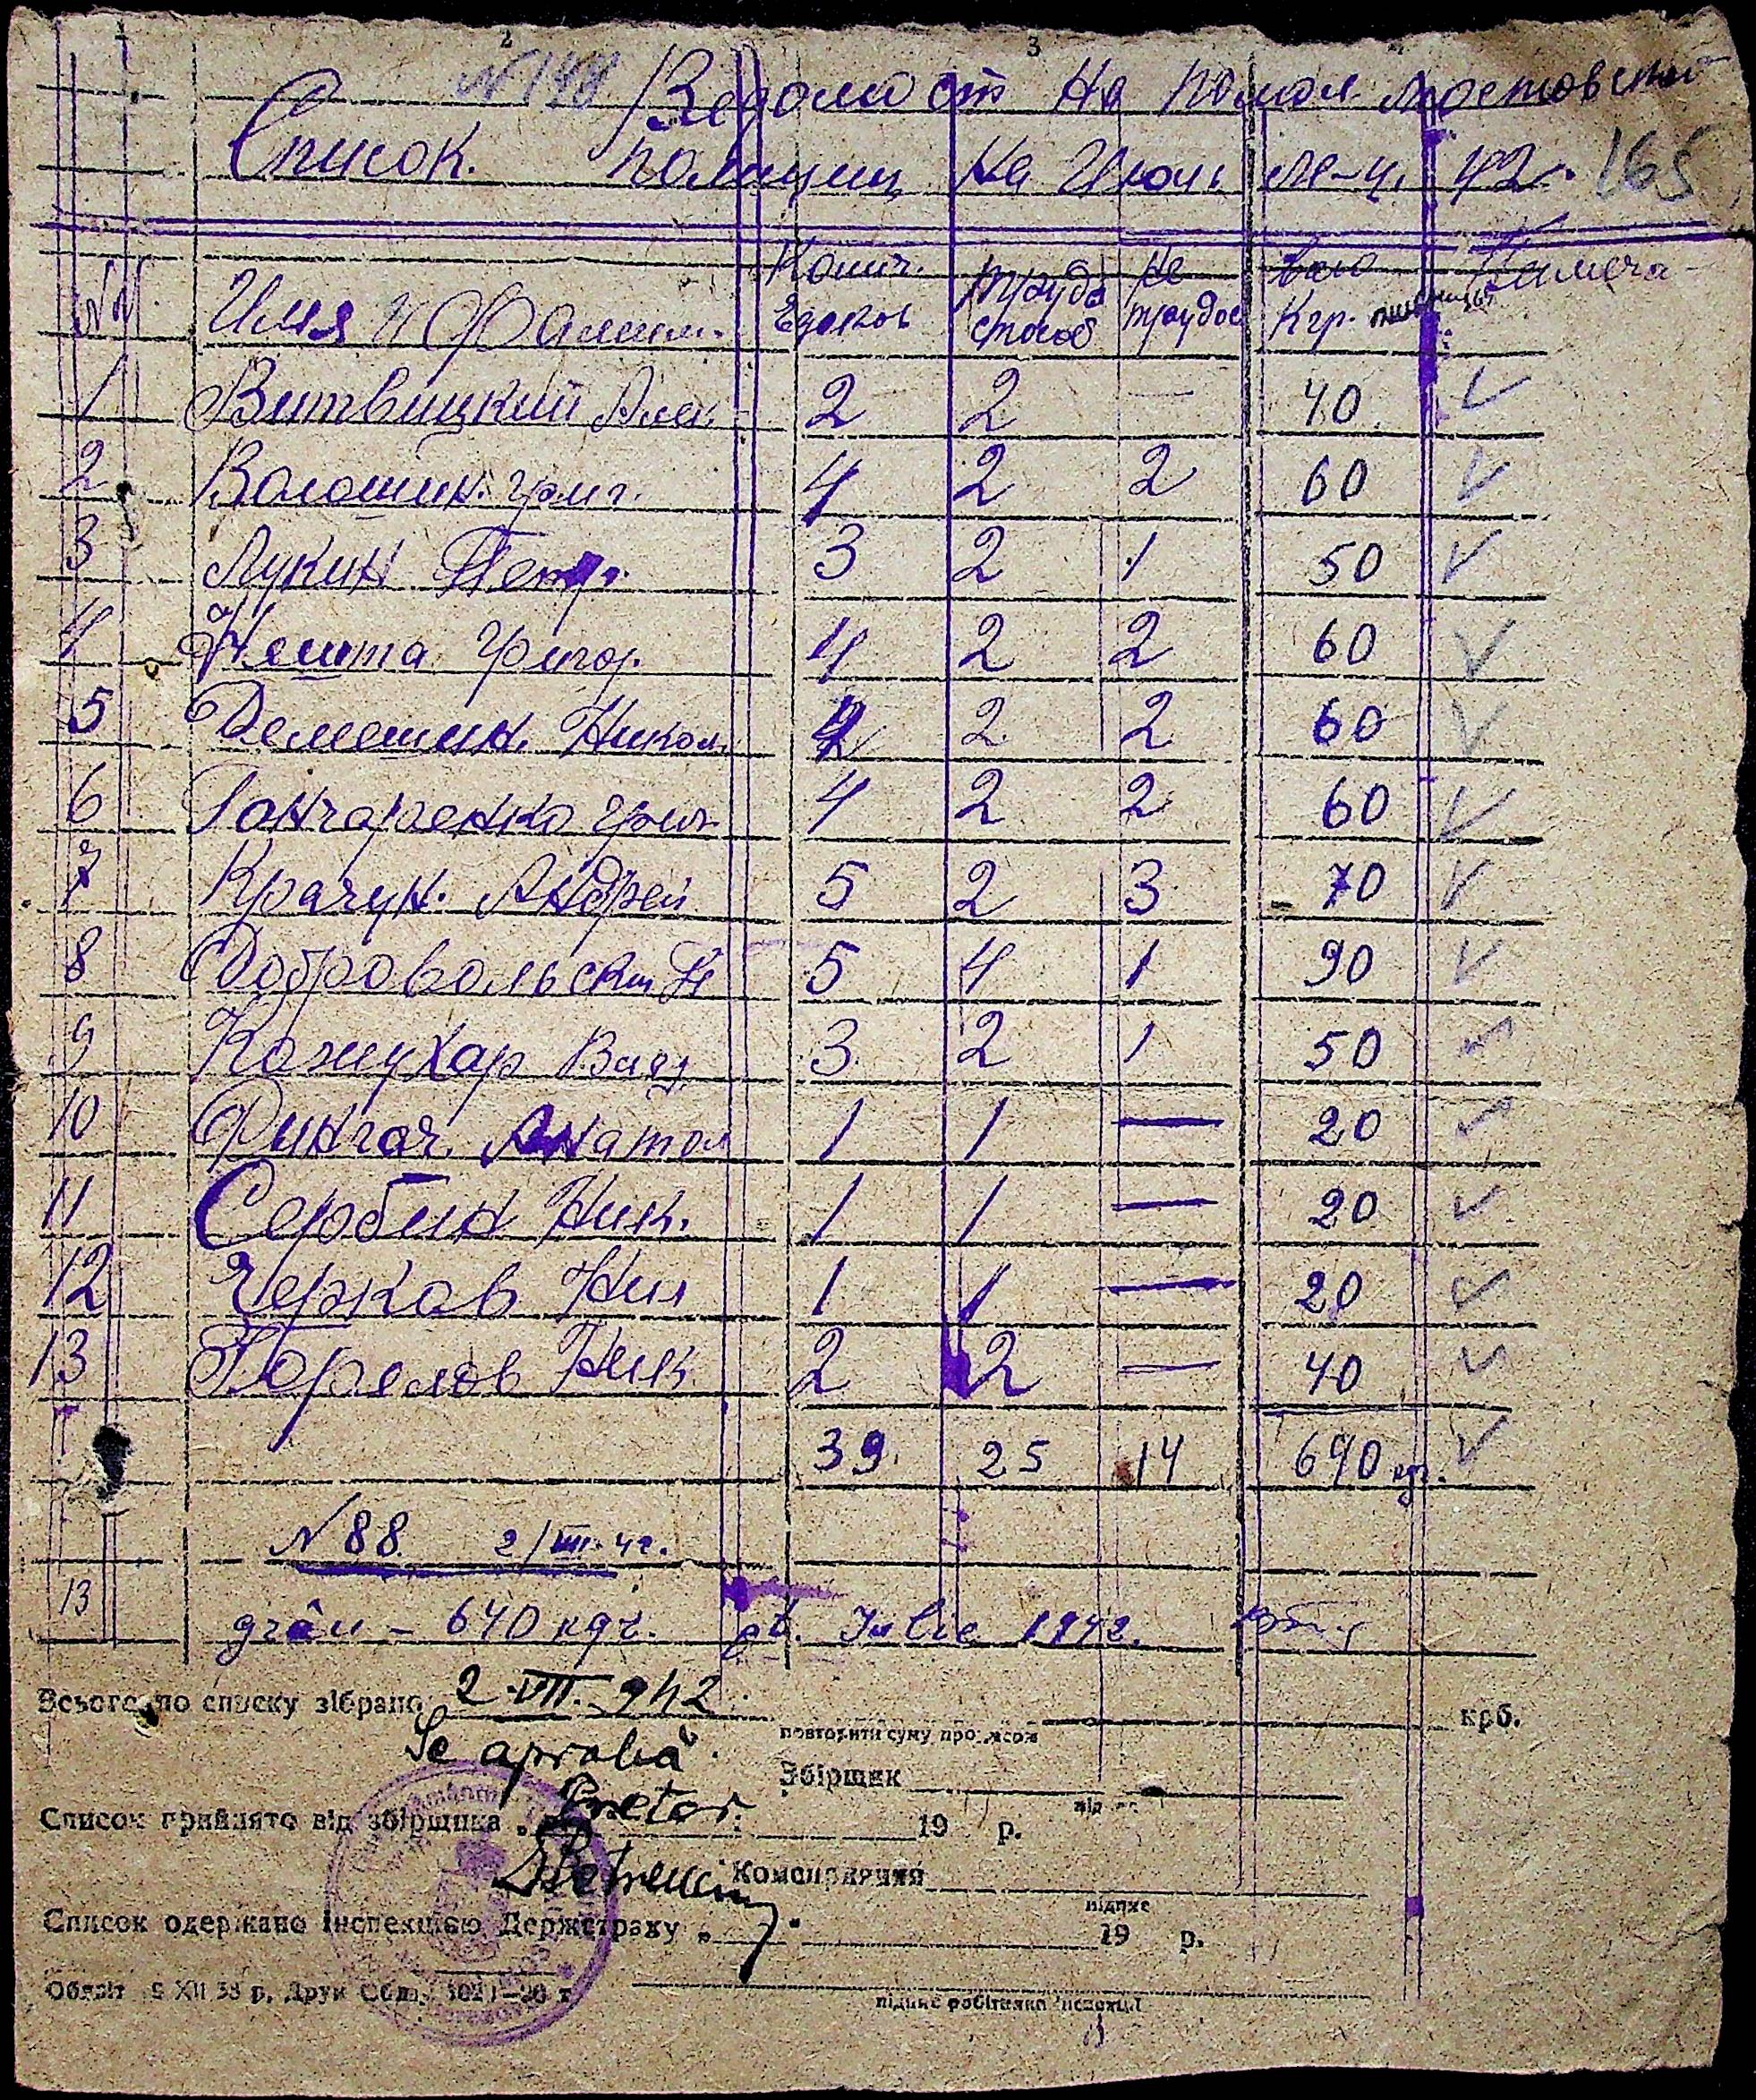 2 3
№ 148 Ведомост На помол мостовской
Список. полиции На Июль м-ц. 42 г. 165
№№ Имя и Фамил. Колич. Едоков трудо способ Не трудос Всего Кгр. пшеницы Примеча-
1 Витвицкий Алек. 2 2 — 40 ✓
2 Волошин. Григ. 4 2 2 60 ✓
3 Лукин Петр. 3 2 1 50 ✓
4 Нешта Григор. 4 2 2 60 ✓
5 Демешин. Никол. 4 2 2 60 ✓
6 Гончаренко Григ 4 2 2 60 ✓
7 Крачун. Андрей 5 2 3 70 ✓
8 Добровольски Н 5 4 1 90 ✓
9 Кожухар Влад 3 2 1 50 ✓
10 Фингач. Анатол 1 1 — 20 ✓
11 Сербин Ник. 1 1 — 20 ✓
12 Черков Ник 1 1 — 20 ✓
13 Горелов Ник 2 2 — 40 ✓
39. 25 14 640 кгр. ✓
№ 88. 2/VII. 42.
13 grâu – 640 кgr. pt. Iulie 1942.
Всього по списку зібрано 2.VII.942. повторити суму прописом крб.
Se aprobă.
Збірщик підпис
Pretor.
Список прийнято від збірщика „ 19 р.
Petrescu
підпис
Список одержано інспекцією Держстраху „ 19 р.
Облліт 9 XII 38 р. Друк
підпис робітника інспекції